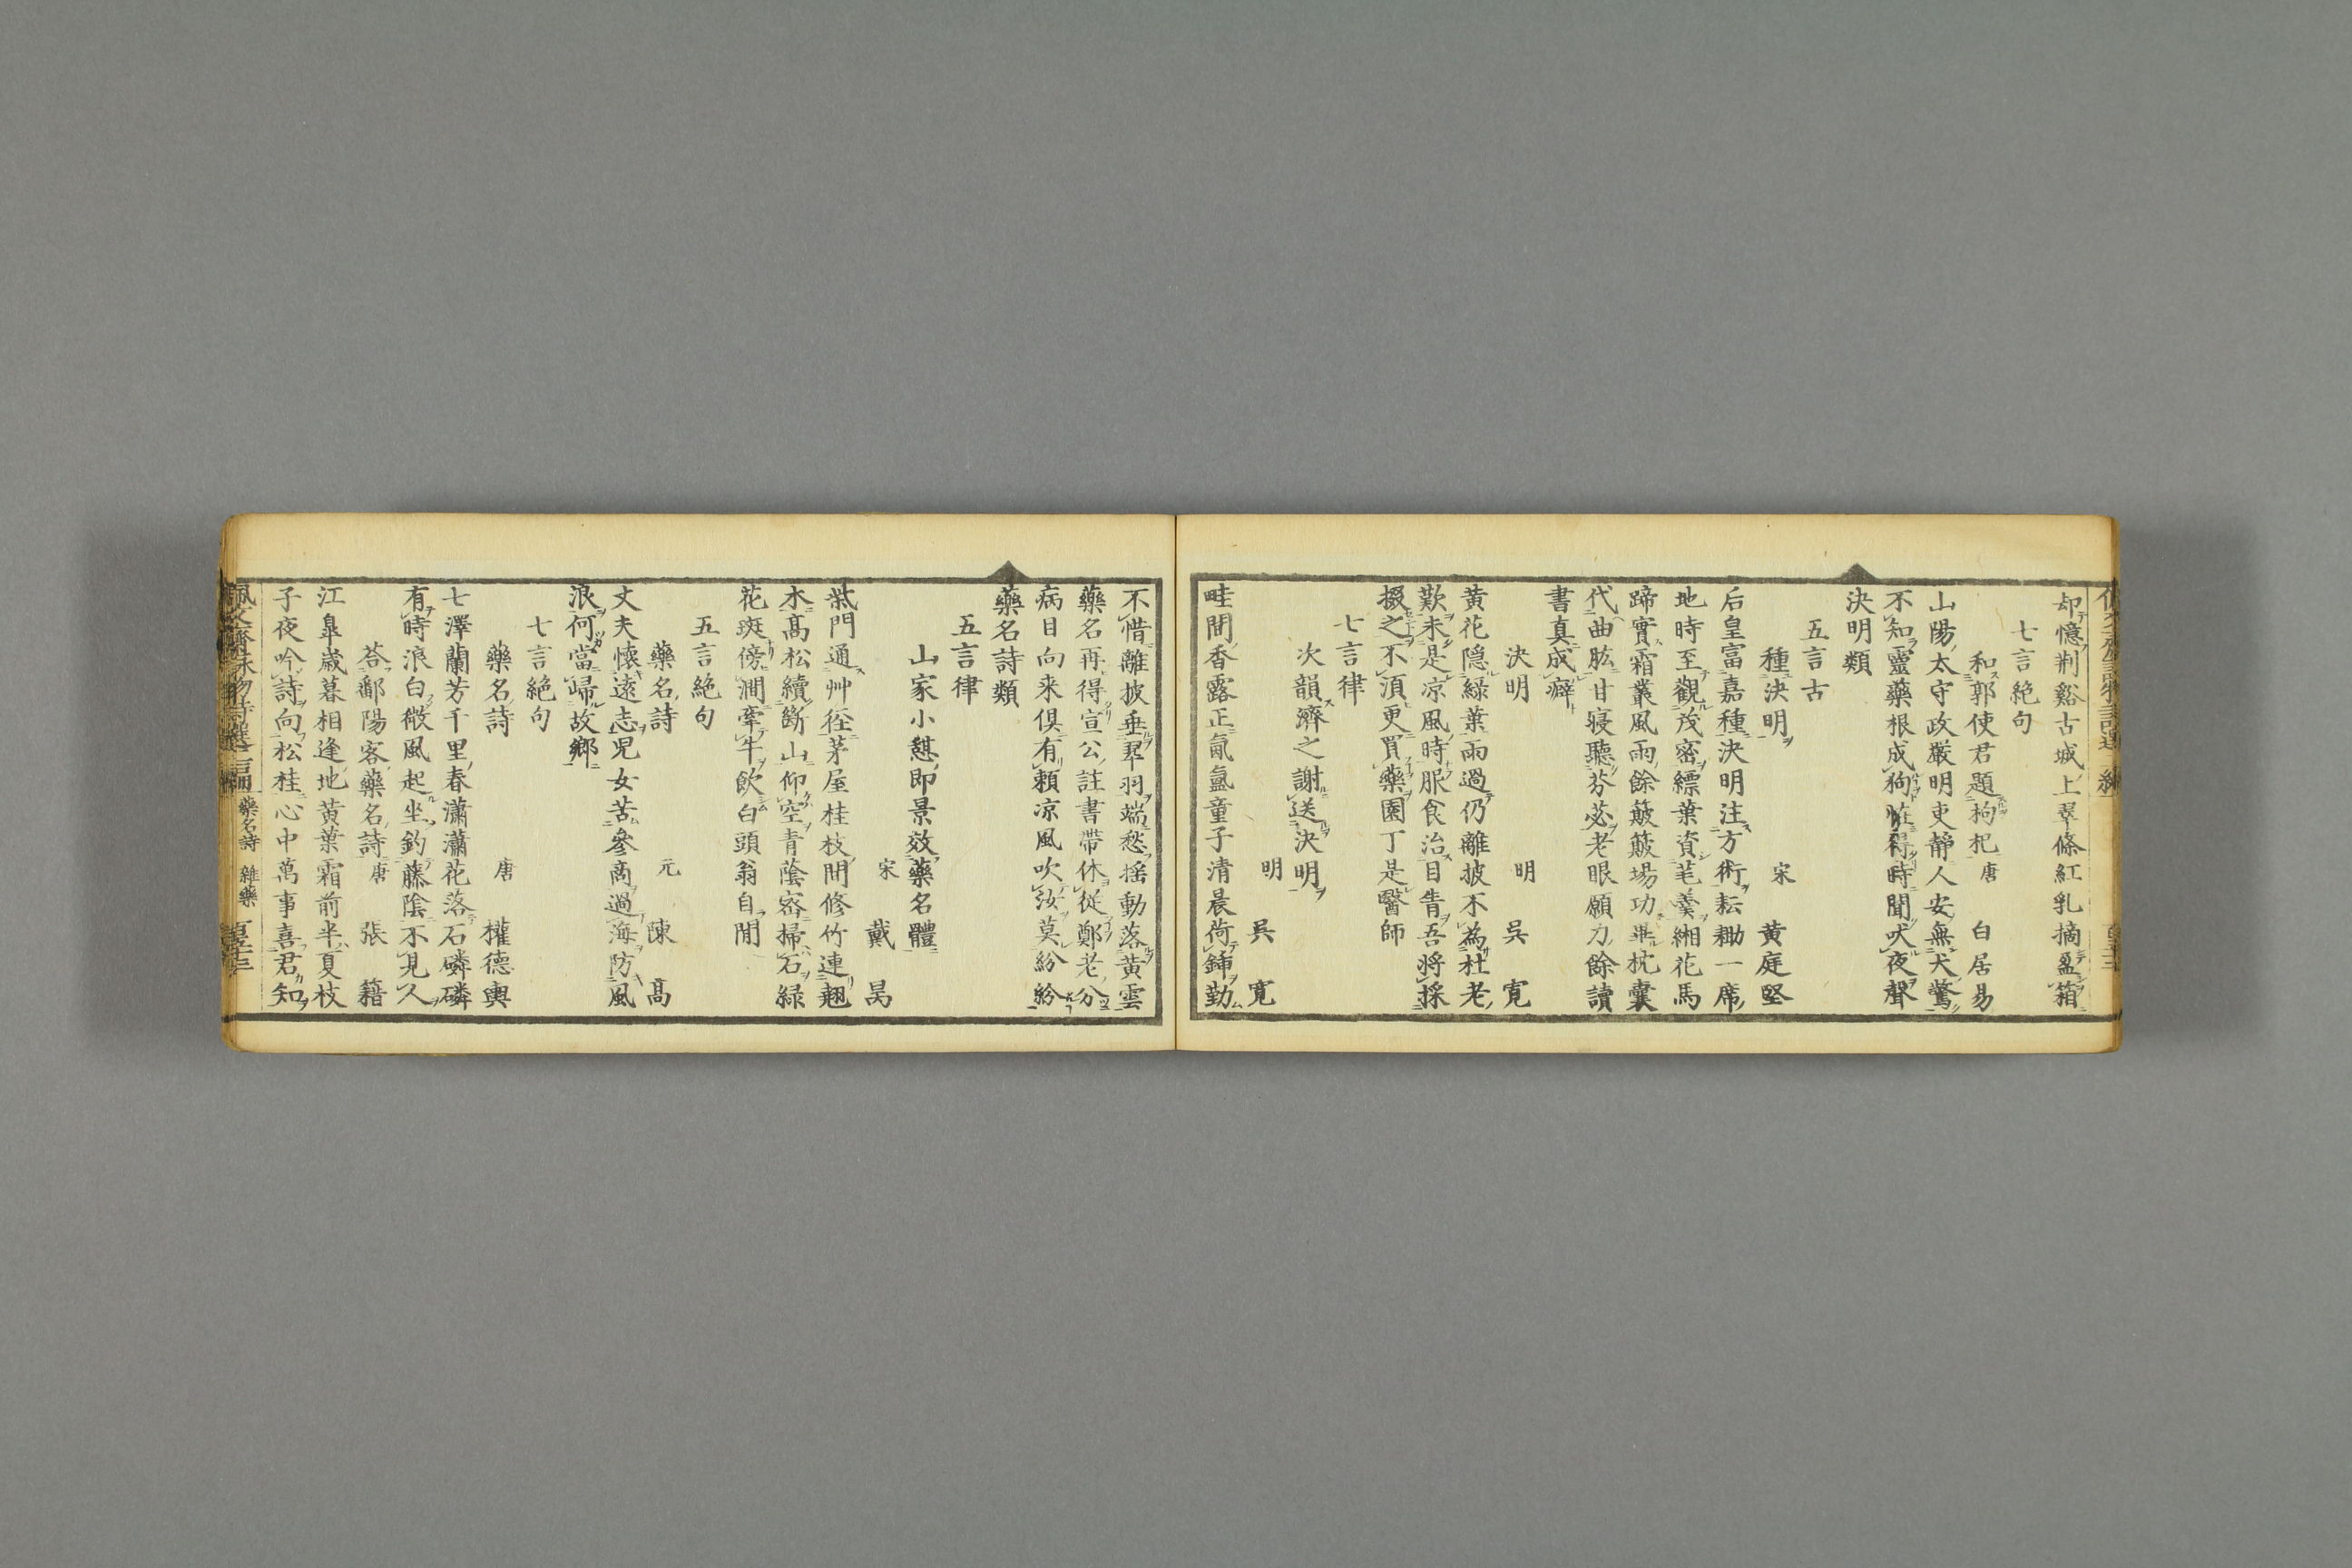 却憶荆谿古城上翠條紅乳摘盈箱
七言絶句
和郭使君題枸杞 唐 白居易
山陽太守政嚴明吏靜人安無犬驚
不知靈藥根成狗怪得時聞吠夜聲
決明類
五言古
種決明 宋 黄庭堅
后皇富嘉種決明注方術耘耡一席
地時至觀茂密縹葉資芼羹緗花馬
蹄實霜叢風雨餘簸簸場功畢枕囊
代曲肱甘寝聽芬苾老眼願力餘讀
書真成癖
決明 明 吳寛
黄花隠緑葉雨過仍離披不為杜老
歎未是凉風時服食治目眚吾将採
掇之不湏更買藥園丁是醫師
七言律
次韻濟之謝送決明
明 吳寛
畦間香露正氤氳童子清晨荷鍤勤
不惜離披垂翠羽端愁揺動落黄雲
藥名再得宣公註書帶休従鄭老分
病目向来俱有頼凉風吹汝莫紛紛
藥名詩類
五言律
山家小憇即景效藥名體
宋 戴昺
柴門通艸徑茅屋桂枝間修竹連翹
木髙松續斷山仰空青蔭宻掃石緑
花斑傍澗牽牛飲白頭翁自閒
五言絶句
藥名詩 元 陳髙
丈夫懐遠志児女苦參商過海防風
浪何當歸故郷
七言絶句
藥名詩 唐 權德輿
七澤蘭芳千里春瀟瀟花落石磷磷
有時浪白㣲風起坐釣藤陰不見人
荅鄱陽客藥名詩 唐 張籍
江皐歳暮相逢地黄葉霜前半夏枝
子夜吟詩向松桂心中萬事喜君知
佩文齋詠物詩選 藥名詩 雜藥